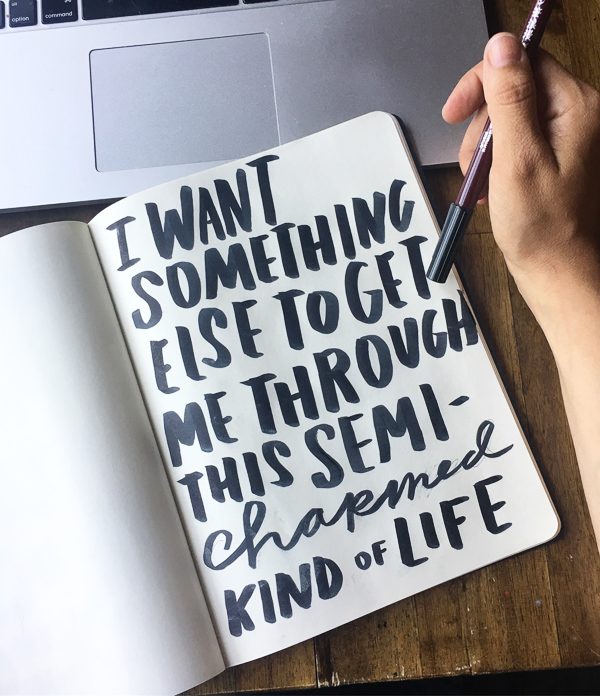 option
command
I WANT
SOMETHING
ELSE TO GET
ME THROUGH
THIS SEMI-
charmed
KIND OF LIFE